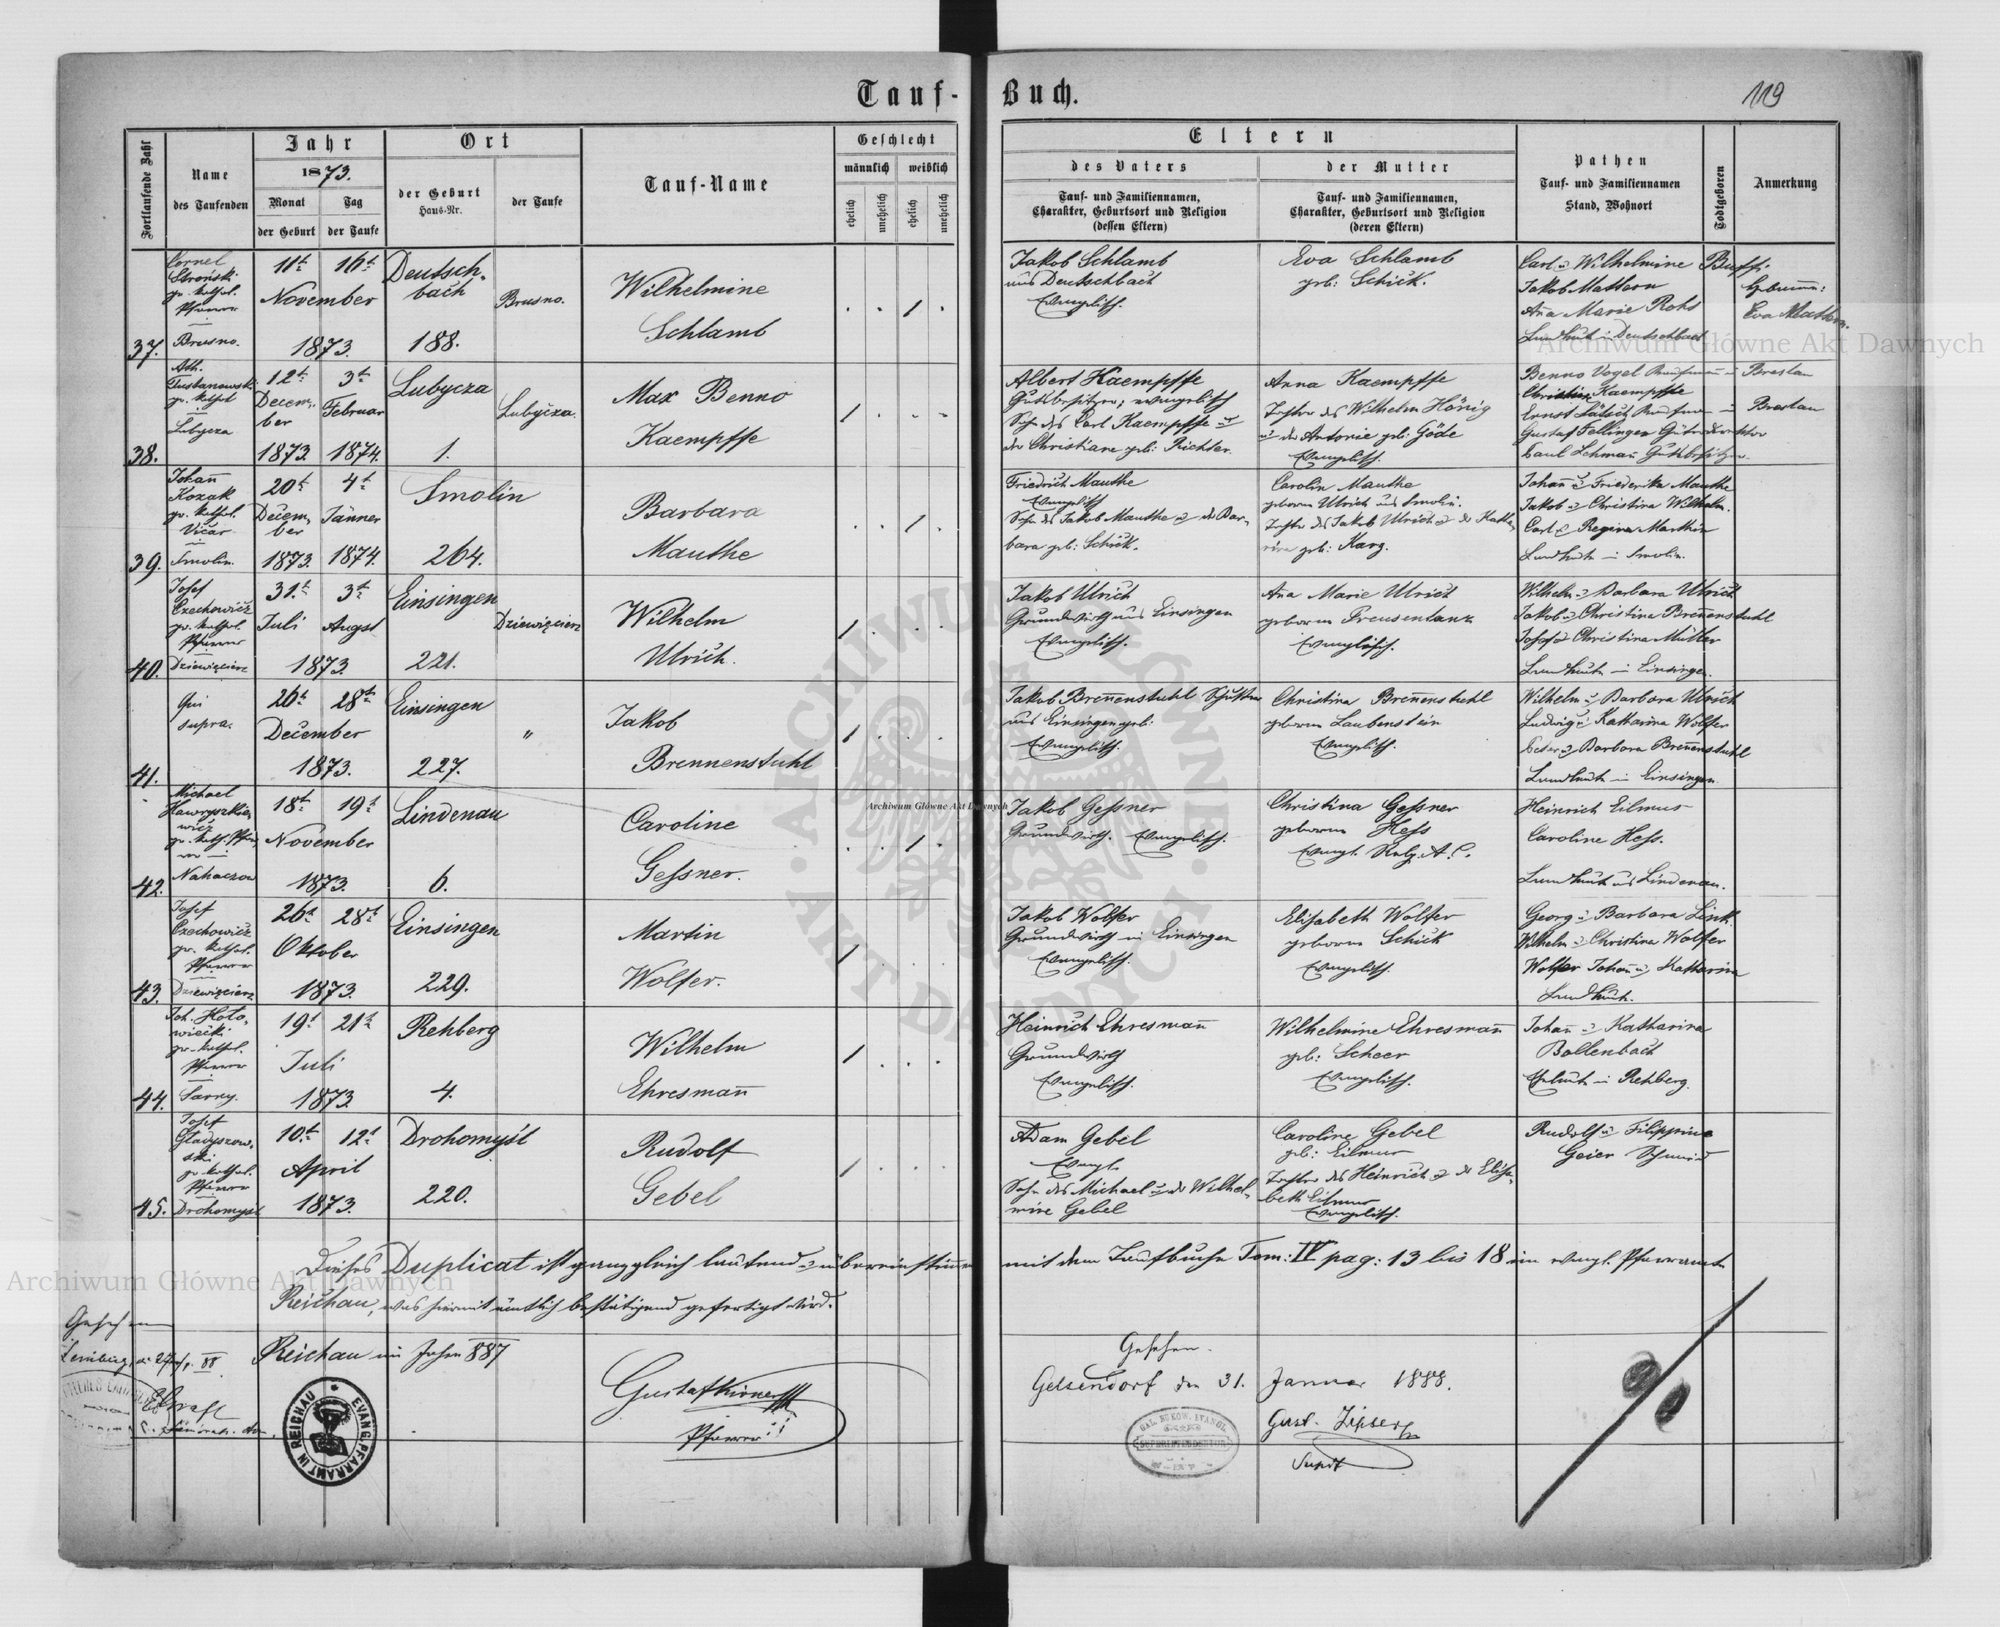 Tauf-Buch.
119
Fortlaufende Zahl
Name
des Taufenden
Jahr
1873.
Monat
der Geburt
Tag
der Taufe
Ort
der Geburt
Haus-Nr.
der Taufe
Tauf-Name
Geschlecht
männlich
weiblich
ehelich
unehelich
ehelich
unehelich
Eltern
des Vaters
Tauf- und Familiennamen,
Charakter, Geburtsort und Religion
(dessen Eltern)
der Mutter
Tauf- und Familiennamen,
Charakter, Geburtsort und Religion
(deren Eltern)
Pathen
Tauf- und Familiennamen
Stand, Wohnort
Todtgeboren
Anmerkung
37.
Cornel
gr. kathol.
Pfarrer
Brusno.
11t 16t
November
1873.
Deutsch-
bach
188.
Brusno.
Wilhelmine
Schlamb
Jakob Schlamb
aus Deutschbach
Evangelisch.
Eva Schlamb
geb: Schick.
Carl u Wilhelmine Buffi
Jakob Mattern
Ana Marie Rohs
Landleute in Deutschbach
Eva Mattern.
38.
Ath.
Tustanowski
gr. kathol
Lubycza
12t 3t
Decem-
ber
Februar
1873. 1874.
Lubycza
1.
Lubycza.
Max Benno
Kaempffe
Albert Kaempffe
Gutsbesitzer; evangelisch
Sohn des Carl Kaempffe u
der Christiane geb: Richter.
Anna Kaempffe
Tochter des Wilhelm Hönig
u der Antonie geb: Göde
Evangelisch.
Benno Vogel Kaufmann in Breslau
Christian Kaempffe
Breslau
39.
Johañ
Kozak
gr. kathol.
Vicar
Smolin.
20t 4t
Decem-
ber
Jänner
1873. 1874.
Smolin
264.
Barbara
Mauthe
Friedrich Mauthe
Evangelisch
Sohn des Jakob Mauthe u der Bar-
bara geb: Schick.
Carolin Mauthe
geborne Ulrich aus Smolin.
Tochter des Jakob Ulrich u der Katha-
rina geb: Karg.
Johañ u Friederika Mauthe
Jakob u Christina Wilhelm.
Carl u Regina Mathia
Landleute in Smolin.
40.
Josef
Czechowicz
gr. kathol.
Pfarrer
Dziewięcierz
31t. 3t.
Juli Augst
1873.
Einsingen
221.
Dziewięcierz
Wilhelm
Ulrich.
Jakob Ulrich
Grundwirth aus Einsingen
Evangelisch.
Ana Marie Ulrich
geborne Freusentanz
Evangelisch.
Wilhelm u Barbara Ulrich
Jakob u Christina Breñenstuhl
Josef u Christina Müller
Landleute in Einsingen.
41.
Qui
supra.
26t 28t
December
1873.
Einsingen
227.
"
Jakob
Brennenstuhl
Jakob Breñenstuhl Schuster
aus Einsingen geb:
Evangelisch.
Christina Breñenstuhl
geborne Laubenstein
Evangelisch.
Wilhelm u Barbara Ulrich
Ludwig u Katharina Wolfer
Peter u Barbara Breñenstuhl
Landleute in Einsingen.
42.
Michael
Hawryszkie-
wicz
gr. kath. Pfar-
rer in
Nahaczow
18t 19t
November
1873.
Lindenau
6.
Caroline
Gessner.
Jakob Gessner
Grundwirth. Evangelisch.
Christina Gessner
geborne Hess
Evangl. Relg. A. C.
Heinrich Eilmus
Caroline Hess.
Landleute aus Lindenau.
43.
Josef
Czechowicz
gr. kathol.
Pfarrer
Dziewięcierz
26t 28t
Oktober
1873.
Einsingen
229.
Martin
Wolfer.
Jakob Wolfer
Grundwirth in Einsingen
Evangelisch.
Elisabeth Wolfer
geborne Schick
Evangelisch.
Georg u Barbara Link
Wilhelm u Christina Wolfer
Wolfer Johañ u Katharina
Landleute.
44.
Joh. Hoło-
wiecki
gr. kathol.
Pfarrer
Sarny.
19t 21t
Juli
1873
Rehberg
4.
Wilhelm
Ehresmañ
Heinrich Ehresmañ
Grundwirth
Evangelisch.
Wilhelmine Ehresmañ
geb: Scheer
Evangelisch.
Johañ u Katharina
Bollenbach
Eheleute in Rehberg.
45.
Josef
Gładyszow-
ski
gr. kathol.
Pfarrer
Drohomyśl
10t. 12t
April
1873.
Drohomyśl
220.
Rudolf
Gebel
Adam Gebel
Evangl.
Sohn des Michael u der Wilhel-
mine Gebel
Caroline Gebel
geb: Eilmus
Tochter des Heinrich u der Elisa-
beth Eilmus
Evangelisch.
Rudolf u Filippine
Geier
Dieses Duplicat ist ganz gleich lautend u übereinstimmend mit dem Taufbuche Tom: IV pag: 13 bis 18 im evangl. Pfarramte
Reichau, was hiermit ämtlich bestätigend gefertigt wird.
Reichau im Jahre 887
Gesehen
Lemberg
Gustaf Kirner
Pfarrer
EVANG. PFARRAMT IN REICHAU
Gesehen.
Gelsendorf den 31. Januar 1888.
Gust. Zipser
Supdt
GAL. BUKOW. EVANGL.
SUPERINTENDENTUR
Archiwum Główne Akt Dawnych
Archiwum Główne Akt Dawnych
Archiwum Główne Akt Dawnych
ARCHIWUM GŁÓWNE · AKT DAWNYCH ·